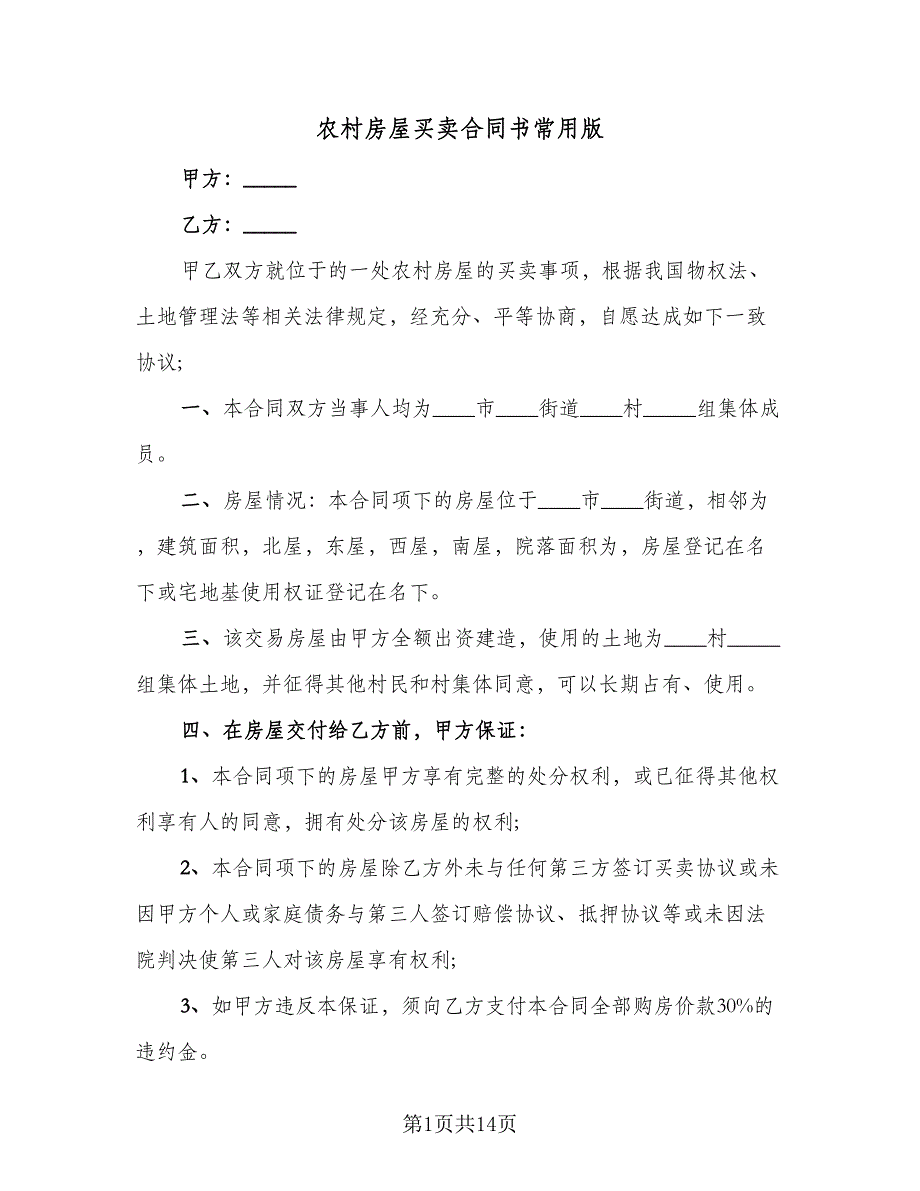 农村房屋买卖合同书常用版
甲方：_____
乙方：_____
甲乙双方就位于的一处农村房屋的买卖事项，根据我国物权法、
土地管理法等相关法律规定，经充分、平等协商，自愿达成如下一致
协议;
一、本合同双方当事人均为____市____街道____村_____组集体成
员。
二、房屋情况：本合同项下的房屋位于____市____街道，相邻为
，建筑面积，北屋，东屋，西屋，南屋，院落面积为，房屋登记在名
下或宅地基使用权证登记在名下。
三、该交易房屋由甲方全额出资建造，使用的土地为____村_____
组集体土地，并征得其他村民和村集体同意，可以长期占有、使用。
四、在房屋交付给乙方前，甲方保证：
1、本合同项下的房屋甲方享有完整的处分权利，或已征得其他权
利享有人的同意，拥有处分该房屋的权利;
2、本合同项下的房屋除乙方外未与任何第三方签订买卖协议或未
因甲方个人或家庭债务与第三人签订赔偿协议、抵押协议等或未因法
院判决使第三人对该房屋享有权利;
3、如甲方违反本保证，须向乙方支付本合同全部购房价款30%的
违约金。
第1页共14页